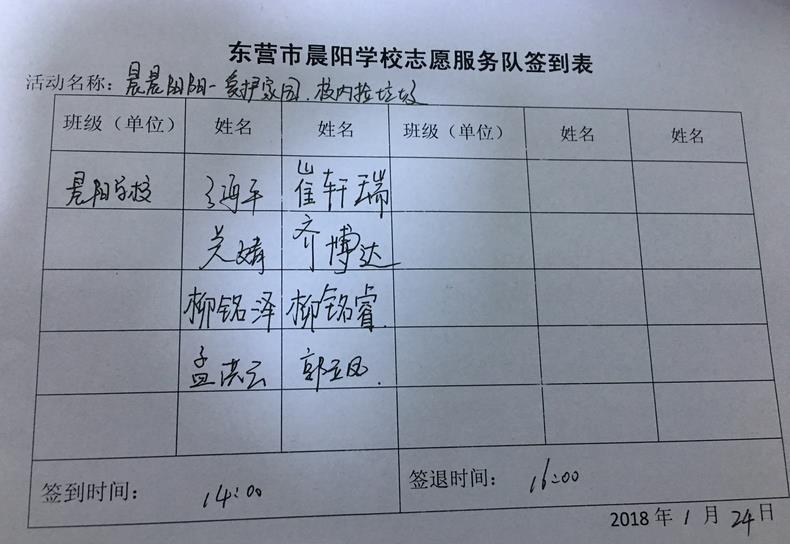 东营市晨阳学校志愿服务队签到表
活动名称：晨晨阳阳-爱护家园.校内捡垃圾
班级（单位） 姓名 姓名 班级（单位） 姓名 姓名
晨阳学校 崔轩瑞
齐博达
柳铭泽 柳铭睿
孟洪云 郭亚凤.
签到时间： 14:00 签退时间： 16:00
2018年1月24日